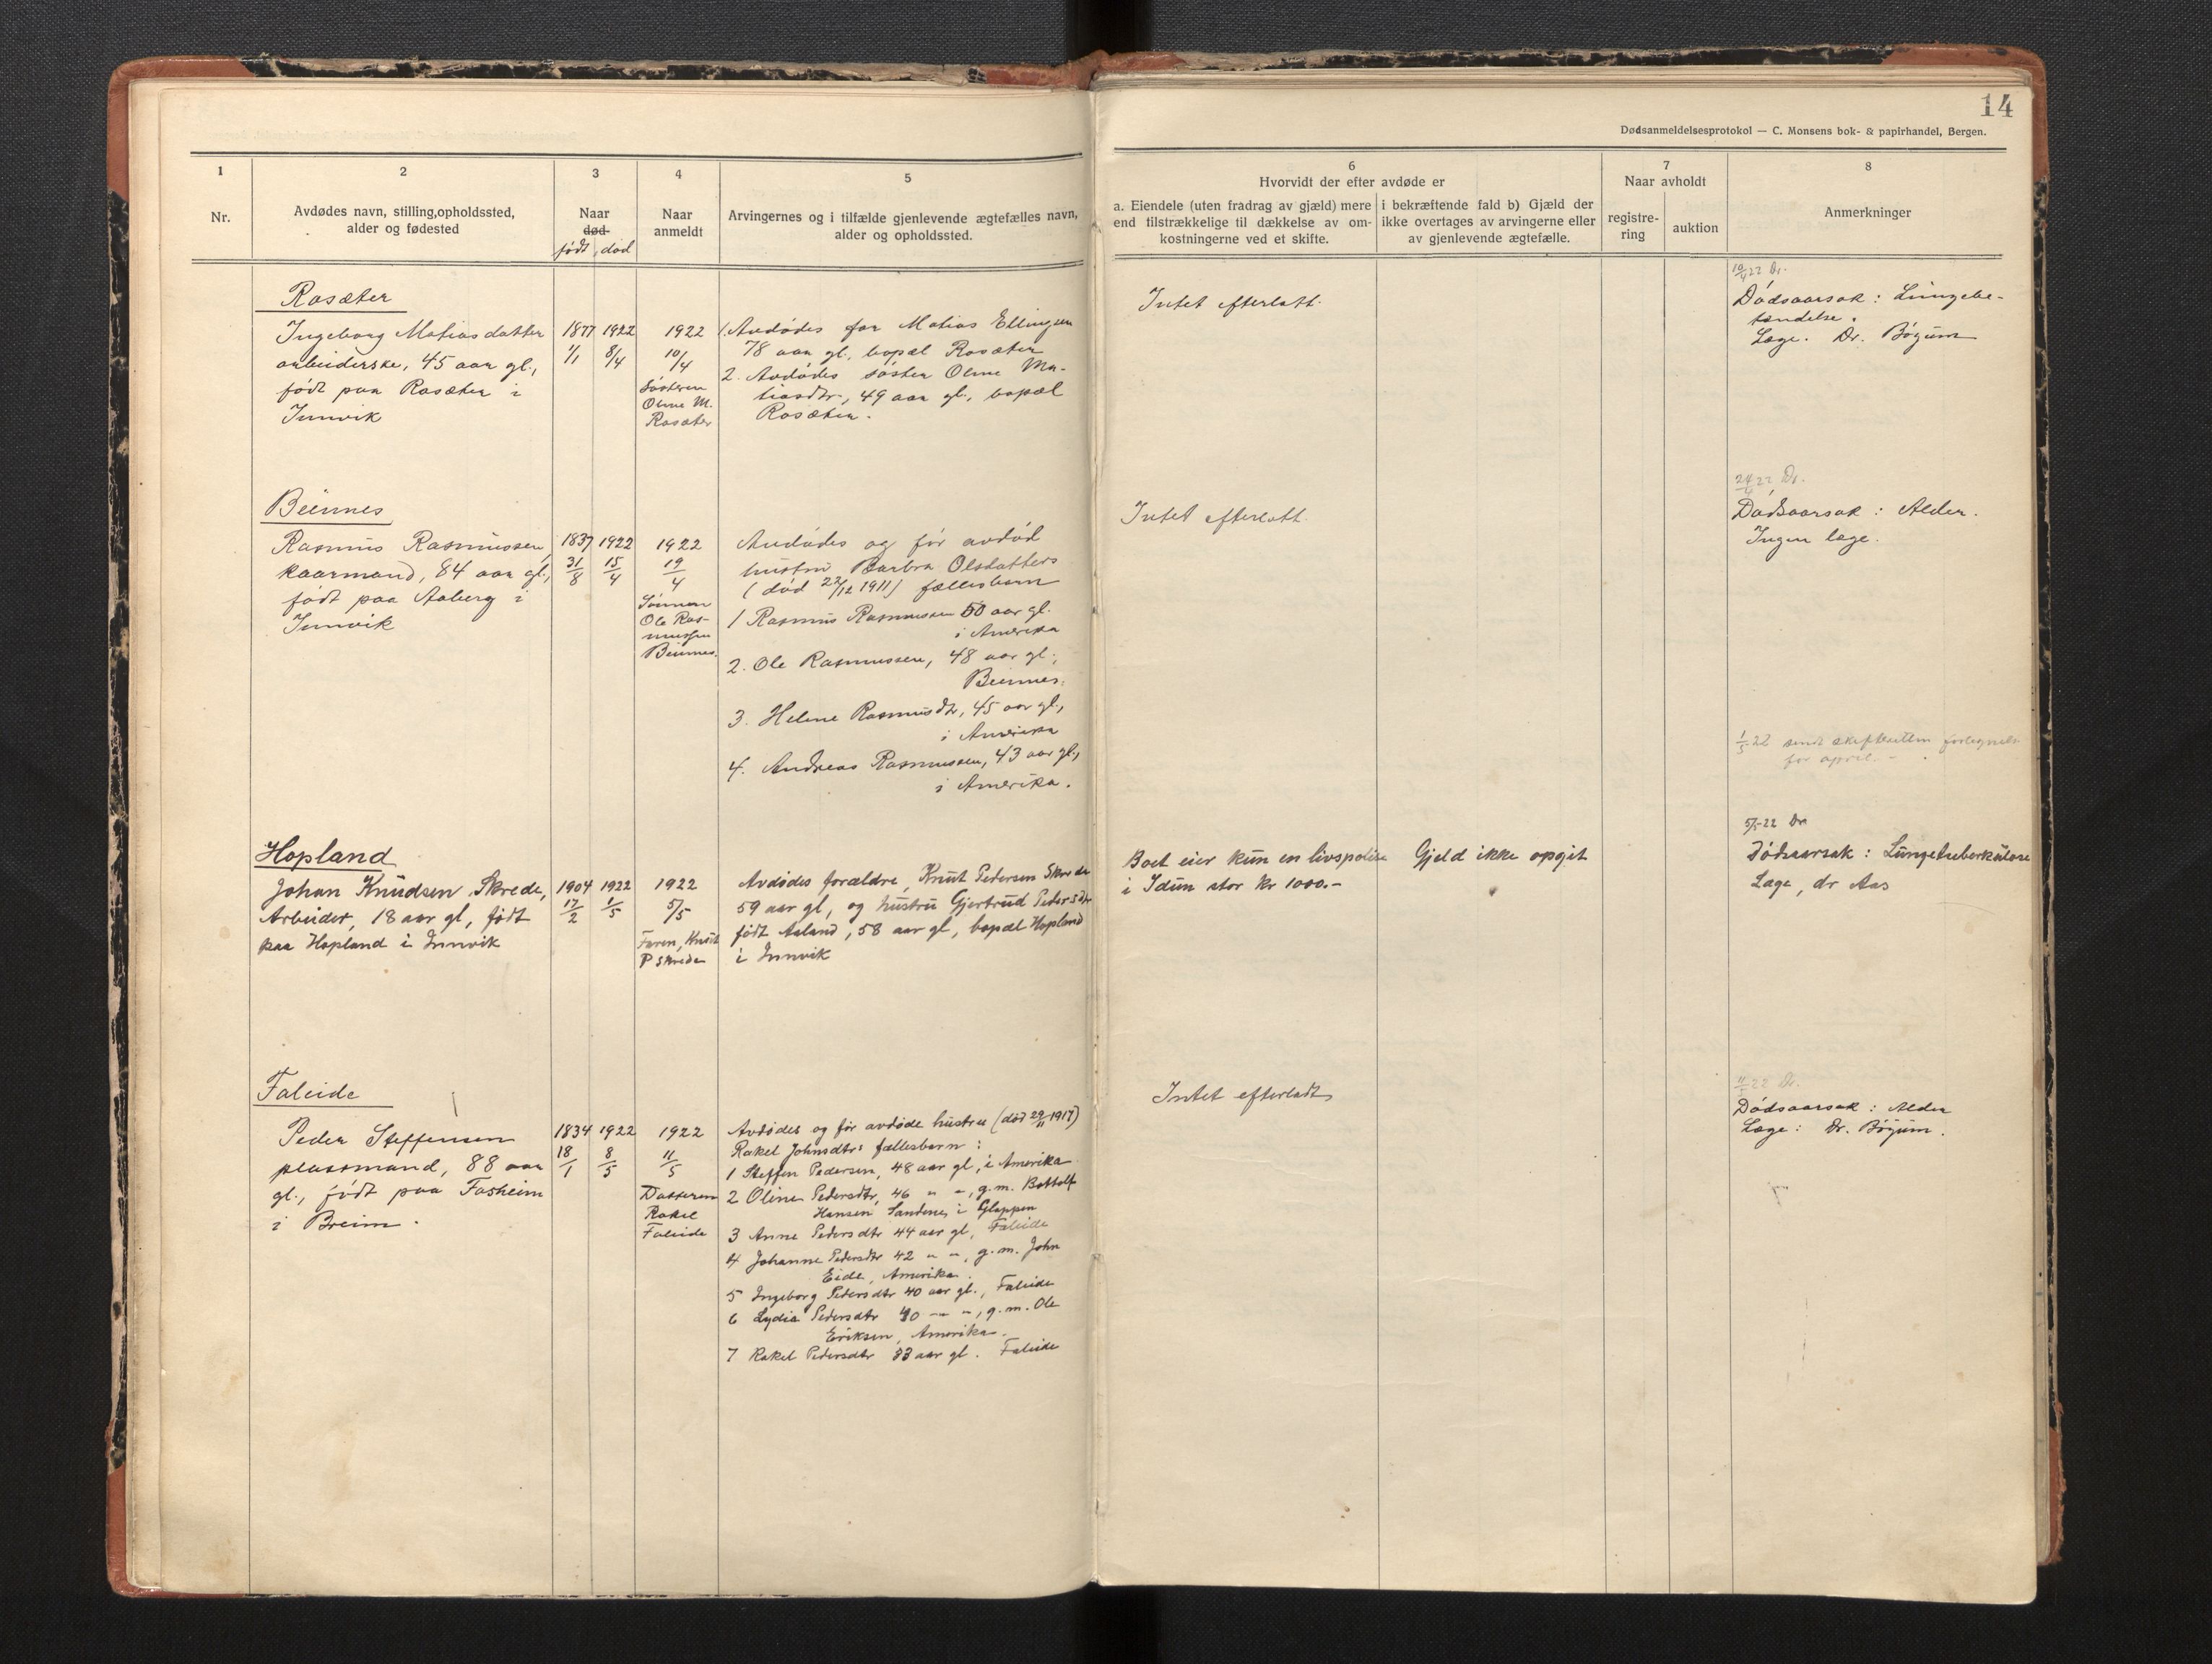 14
Dødsanmeldelsesprotokol — C. Monsens bok- & papirhandel, Bergen.
1
Nr.
2
Avdødes navn, stilling, opholdssted,
alder og fødested
3
Naar
død
født, død
4
Naar
anmeldt
5
Arvingernes og i tilfælde gjenlevende ægtefælles navn,
alder og opholdssted.
6
Hvorvidt der efter avdøde er
a. Eiendele (uten fradrag av gjæld) mere
end tilstrækkelige til dækkelse av om-
kostningerne ved et skifte.
i bekræftende fald b) Gjæld der
ikke overtages av arvingerne eller
av gjenlevende ægtefælle.
7
Naar avholdt
registre-
ring
auktion
8
Anmerkninger
Rosæter
Ingeborg Matiasdatter
arbeiderske, 45 aar gl.,
født paa Rosæter i
Innvik
1877
1/1
1922
8/4
1922
10/4
Søsteren
Oline M.
Rosæter
1. Avdødes far Matias Ellingsen
78 aar gl., bopæl Rosæter
2. Avdødes søster Oline Ma-
tiasdtr., 49 aar gl., bopæl
Rosæter.
Intet efterlatt.
10/4 22 Dr.
Dødsaarsak: Lungebe-
tændelse.
Læge. Dr. Bøgum
Beinnes
Rasmus Rasmussen,
kaarmand, 84 aar gl.,
født paa Aaberg i
Innvik
1837
31/8
1922
15/4
1922
19/4
Sønnen
Ole Ras-
mussen
Beinnes.
Avdødes og før avdød
hustru Barbra Olsdatters
(død 22/12 1911) fællesbarn
1 Rasmus Rasmussen 50 aar gl.
i Amerika
2. Ole Rasmussen, 48 aar gl.,
Beinnes.
3. Helene Rasmusdtr, 45 aar gl.,
i Amerika
4. Andreas Rasmussen, 43 aar gl.,
i Amerika.
Intet efterlatt.
24/4 22 Dr.
Dødsaarsak: Alder.
Ingen læge.
1/5 22 sendt skifteretten fortegnelse
for april. -
Hopland
Johan Knudsen Skrede,
Arbeider, 18 aar gl, født
paa Hopland i Innvik
1904
17/2
1922
1/5
1922
5/5
Faren, Knut
P Skrede
Avdødes forældre, Knut Pedersen Skrede
59 aar gl, og hustru Gjertrud Pedersdtr
født Aaland, 58 aar gl, bopæl Hopland
i Innvik
Boet eier kun en livspolise
i Idun stor kr 1000.-
Gjeld ikke opgit
5/5-22 Dr
Dødsaarsak: Lungetuberkulose
Læge, dr Aas
Faleide
Peder Steffensen
plassmand, 88 aar
gl., født paa Fosheim
i Breim.
1834
18/1
1922
8/5
1922
11/5
Datteren
Rakel
Faleide
Avdødes og før avdøde hustru (død 29/11 1917)
Rakel Johnsdtrs fællesbarn:
1 Steffen Pedersen, 48 aar gl, i Amerika
2 Oline Pedersdtr, 46 " ", g.m. Bottolf
Hansen Sandene, i Gloppen
3 Anne Pedersdtr 44 aar gl, Faleide
4 Johanne Pedersdtr 42 " ", g.m. John
Eide, Amerika.
5 Ingeborg Pedersdtr 40 aar gl., Faleide
6 Lydia Pedersdtr 40 " ", g.m. Ole
Eriksen, Amerika.
7 Rakel Pedersdtr 33 aar gl. Faleide
Intet efterladt
11/5 22 Dr.
Dødsaarsak: Alder
Læge: Dr. Bøgum.